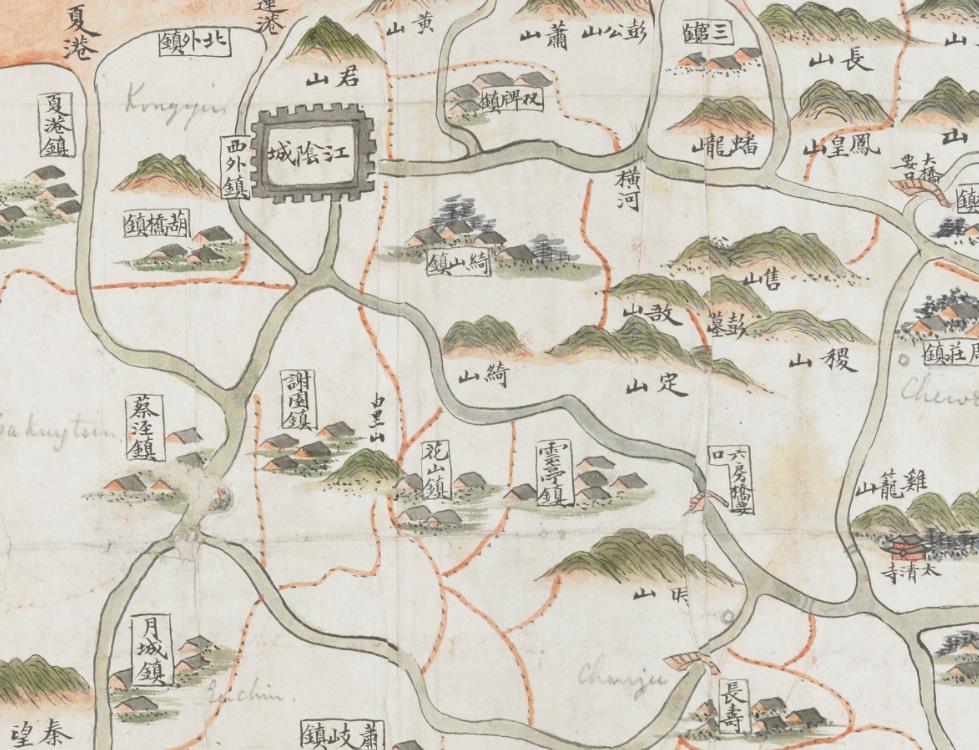 夏港
北外鎮
君山
黃山
蕭山
彭公山
三官鎮
長山
山
夏港鎮
Kongyin
西外鎮
江陰城
双牌鎮
蟠龍山
鳳皇山
山
大橋要口
橫河
葫橋鎮
綺山鎮
售山
敔山
彭墓
稷山
周莊鎮
綺山
定山
謝園鎮
由里山
蔡涇鎮
花山鎮
雲亭鎮
六房橋要口
雞籠山
太清寺
月城鎮
山
Chanju
長壽
秦望
蕭岐鎮